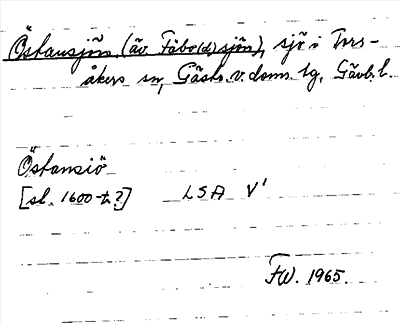 Östansjön (äv Fäbo(d)sjön), sjö i Tors-
åkers sn, Gästr. v. doms. tg, Gävlb. l.
Östansiö
[sl. 1600-t.?] LSA V'
FW. 1965.